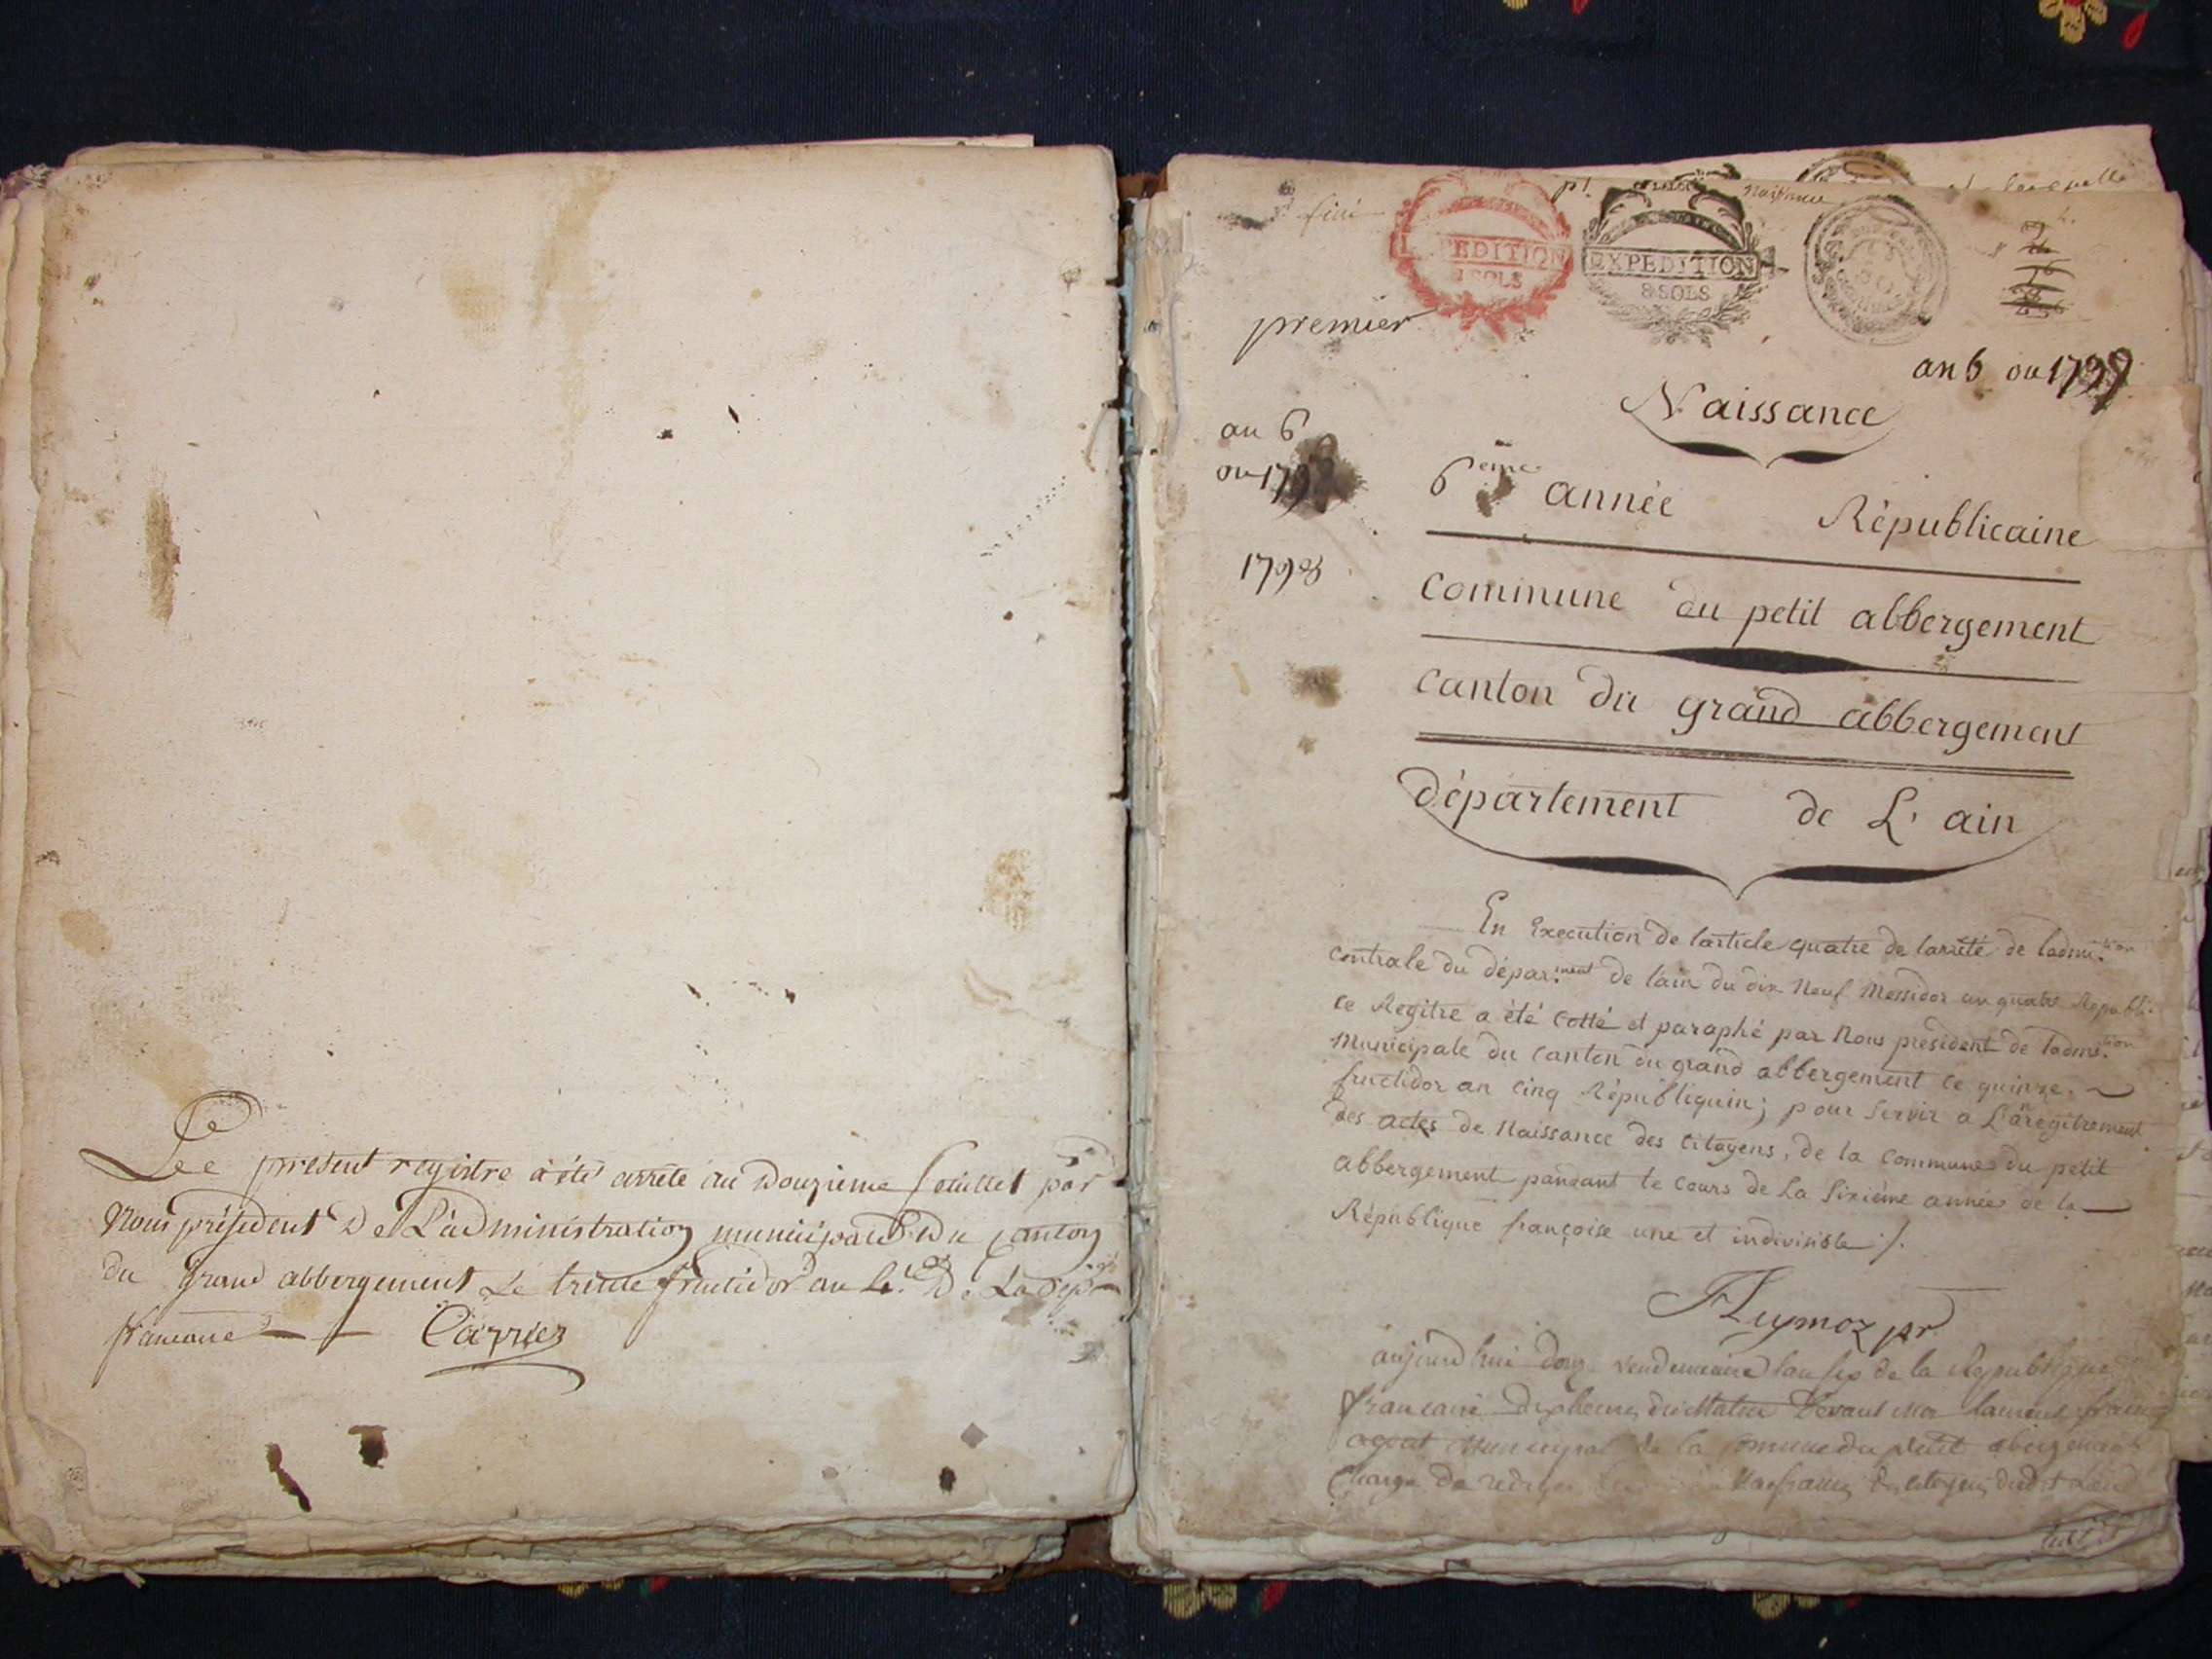 Lee present registre a été arreté au Douzieme feuillet par
Nous président De L'administration municipale Du Canton
du grand abbergement Le trente fructidor an 4.e De La Rep
francaise Carrier
fini
EXPEDITION
8 SOLS
EXPEDITION
8 SOLS
Naissance
premier
an 6 ou 1797
Naissance
an 6
ou 1798
6eme année Républicaine
1798
Commune du petit abbergement
Canton du grand abbergement
département de L'ain
En Execution de l'article quatre de larrêté de ladmi.tion
Centrale du dépar.ment de l'ain du dix Neuf Messidor an quatre Republi.
Ce Regitre a été Cotté et paraphé par Nous président de ladmi.tion
Municipale du Canton du grand abbergement le quinze
fructidor an Cinq Républiquin; pour Servir a L'anregitrement
des actes de Naissance des Citoyens, de la Commune du petit
abbergement pandant le Cours de La Sixième année de la
République françoise une et indivisible /.
aujourd'hui vendemiaire lan six de la Republique
francaise devant moi
agent Municipal de la Commune du petit abergement
Charge de rediger